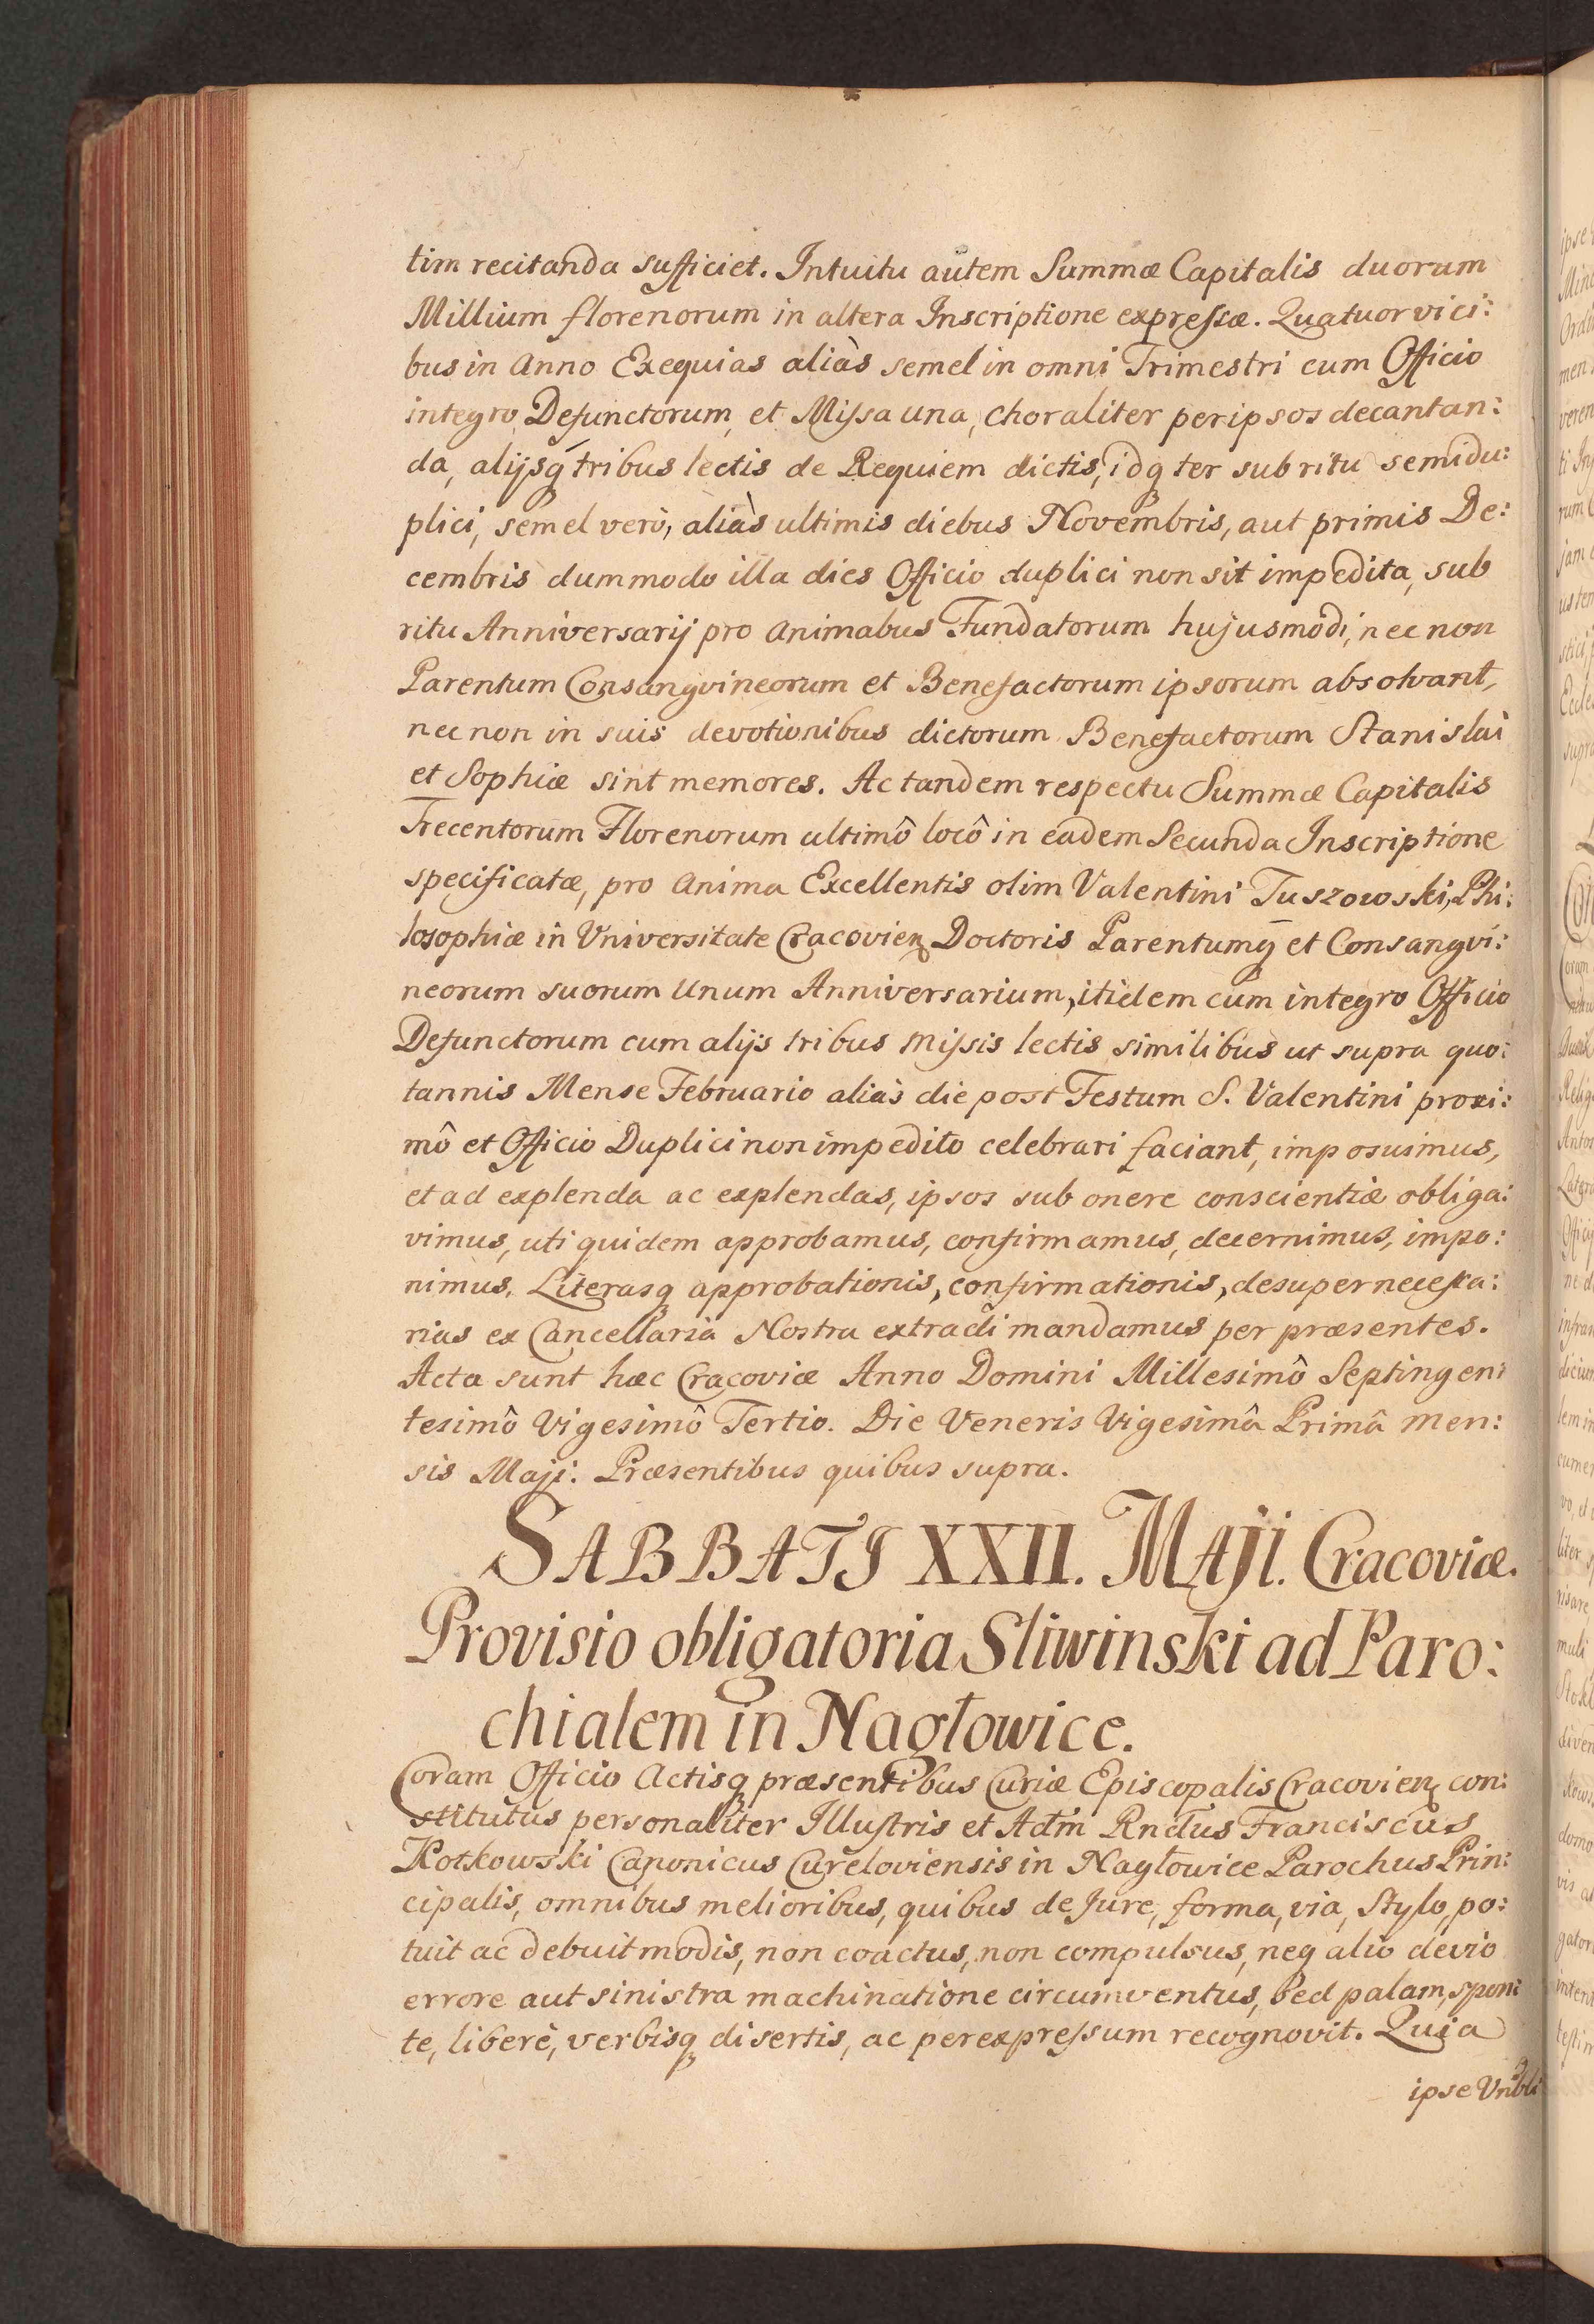 tim recitanda sufficiet. Intuitu autem Summæ Capitalis duorum
Millium florenorum in altera Inscriptione expreſsæ. Quatuor vici:
bus in Anno Exequias aliàs semel in omni Trimestri cum Officio
integro Defunctorum, et Miſsa una, choraliter per ipsos decantan:
da, alijsq́ tribus lectis de Requiem dictis, idq ter sub ritu semidu:
plici, semel verò, aliàs ultimis diebus Novembris, aut primis De:
cembris dummodo illa dies Officio duplici non sit impedita, sub
ritu Anniversarij pro Animabus Fundatorum hujusmodi, nec non
Parentum Consangvineorum et Benefactorum ipsorum absolvant,
nec non in suis devotionibus dictorum Benefactorum Stanislai
et Sophiæ sint memores. Ac tandem respectu Summæ Capitalis
Trecentorum Florenorum ultimô locô in eadem Secunda Inscriptione
specificatæ, pro Anima Excellentis olim Valentini Tuszowski, Phi:
losophiæ in Universitate Cracovien Doctoris Parentumq̄ et Consangvi:
neorum suorum Unum Anniversarium, itidem cum integro Officio
Defunctorum cum alijs tribus Miſsis lectis similibus ut supra quo:
tannis Mense Februario aliàs die post Festum S. Valentini proxi:
mô et Officio Duplici non impedito celebrari faciant, imposuimus,
et ad explenda ac explendas, ipsos sub onere conscientiæ obliga:
vimus, uti quidem approbamus, confirmamus, decernimus, impo:
nimus. Literasq approbationis, confirmationis, desuper neceſsa:
rias ex Cancellaria Nostra extradi mandamus per præsentes.
Acta sunt hæc Cracoviæ Anno Domini Millesimô Septingen:
tesimô Vigesimô Tertio. Die Veneris Vigesimâ Primâ Men:
sis Maji. Præsentibus quibus supra.
SABBATI XXII. MAJI. Cracoviæ.
Provisio obligatoria Sliwinski ad Paro:
chialem in Nagłowice.
Coram Officio Actisq præsentibus Curiæ Episcopalis Cracovien con:
stitutus personaliter Illuſtris et Adm̃ Rndus Franciscus
Kotkowski Canonicus Cureloviensis in Nagłowice Parochus Prin:
cipalis, omnibus melioribus, quibus de Jure, forma, via, Stylo, po:
tuit ac debuit modis, non coactus, non compulsus, neq alio devio
errore aut sinistra machinatione circumventus, sed palam, spon:
te, liberè, verbisq disertis, ac per expreſsum recognovit. Quia
ipse